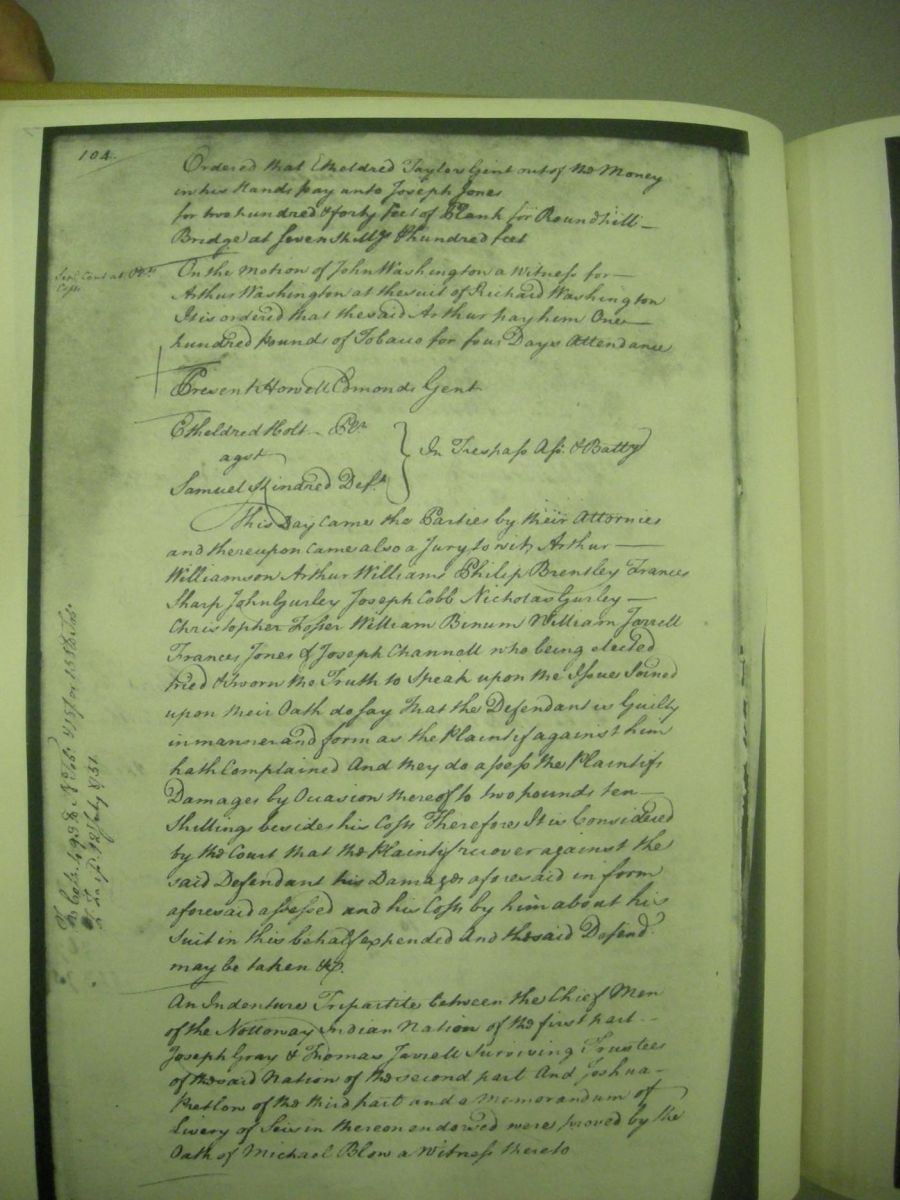 104.
Ordered that Etheldred Taylor Gent out of the Money
in his Hands pay unto Joseph Jones
for two hundred & forty feet of Plank for Roundhill
Bridge at Seven Shillgs hundred feet
On the motion of John Washington a Witness for
Arthur Washington at the suit of Richard Washington
It is ordered that the said Arthur pay him One
hundred pounds of Tobacco for four Days Attendance
Present Howell Edmonds Gent
Etheldred Holt Plt
agst
Samuel Kindred Deft
In Trespass Ass: & Batty
This Day came the Parties by their Attornies
and thereupon came also a Jury to wit, Arthur
Williamson Arthur Williams Philip Brentley Frances
Sharp John Gurley Joseph Cobb Nicholas Gurley
Christopher Foster William Binum William Jarrell
Frances Jones & Joseph Channell who being elected
tried & sworn the Truth to Speak upon the Issue Joined
upon their Oath do say That the Defendant is Guilty
in manner and form as the Plaintif against him
hath Complained And they do assess the Plaintifs
Damages by Ocasion thereof to two pounds ten
Shillings besides his Costs Therefore It is Considered
by the Court that the Plaintif recover against the
said Defendant his Damages aforesaid in form
aforesaid assessed and his Costs by him about his
Suit in this behalf expended And the said Defend.
may be taken &c.
An Indenture Tripartite between the Chief Men
of the Nottoway Indian Nation of the first part
Joseph Gray & Thomas Jarrell Surviving Trustees
of the said Nation of the second part And Joshua
Pretlow of the third part and a Memorandum of
Livery of Seisin thereon endorsed were proved by the
Oath of Michael Blow a Witness thereto